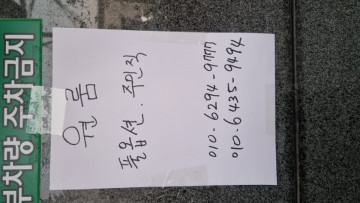 원룸
풀옵션. 주인직
010-6294-9777
010-6435-9494
부차량 주차금지